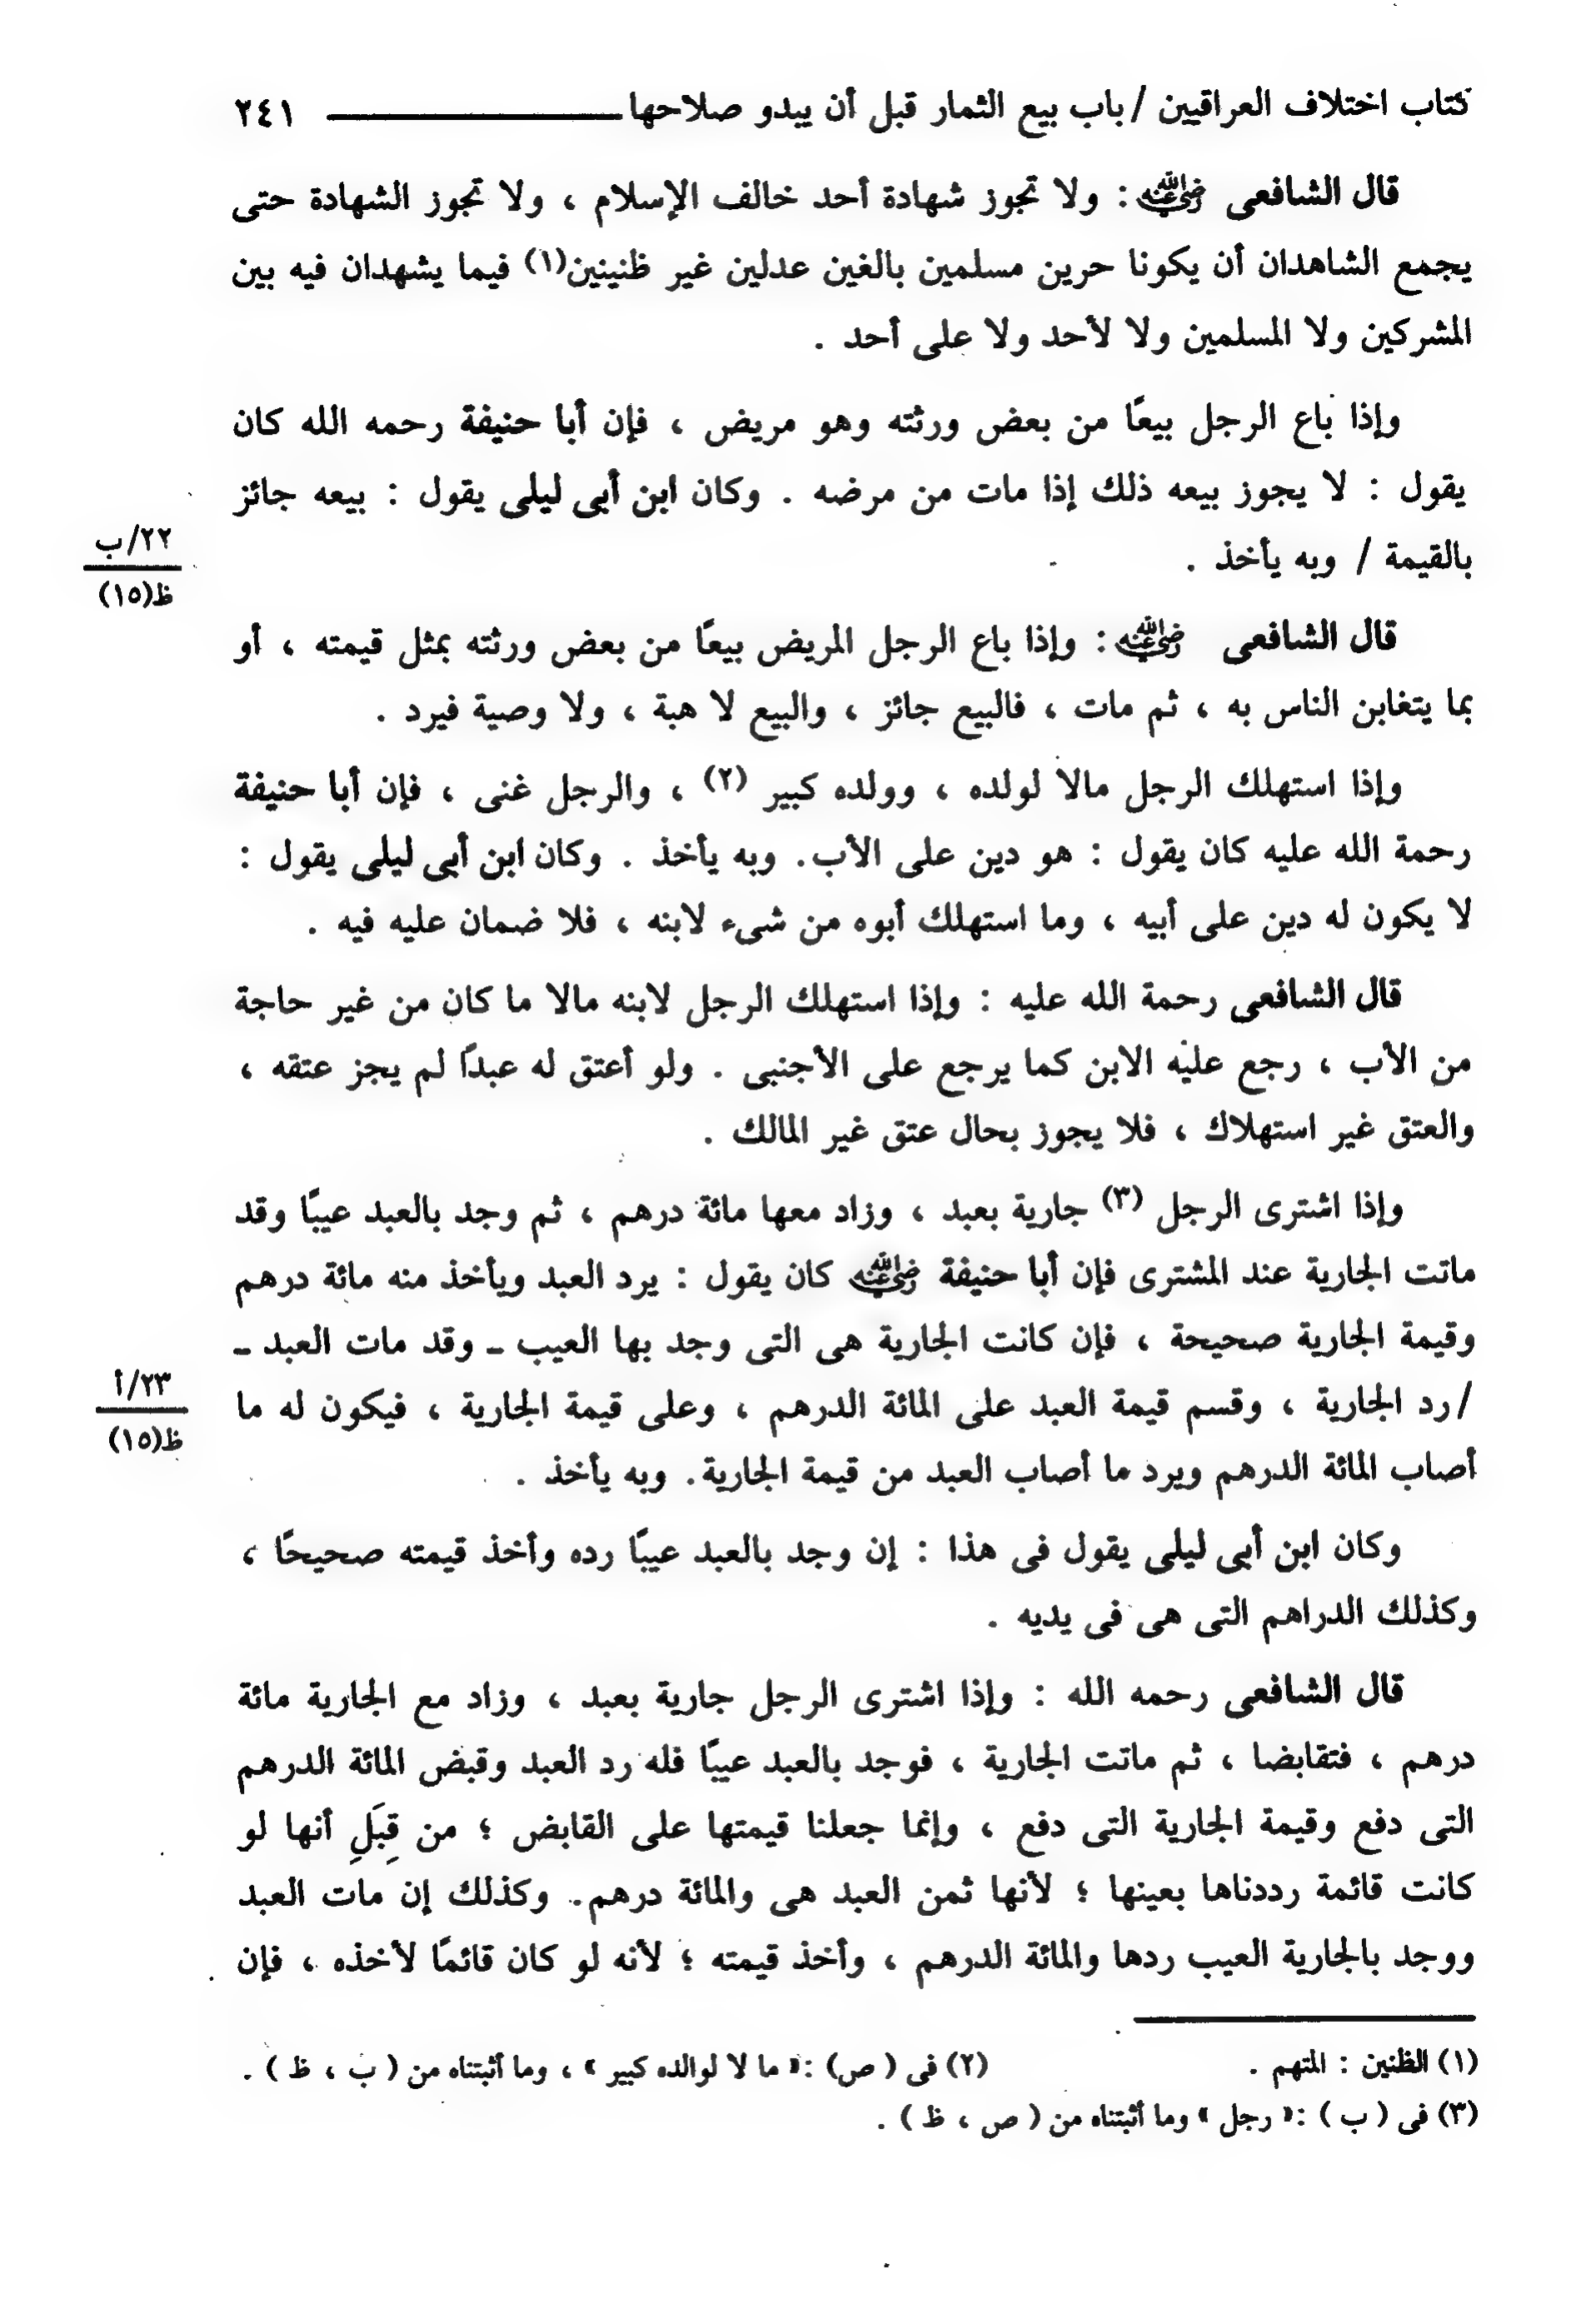 كتاب اختلاف العراقيين / باب بيع الثمار قبل أن يبدو صلاحها ـــــــــــ ٢٤١
قال الشافعى رضي الله عنه : ولا تجوز شهادة أحد خالف الإسلام ، ولا تجوز الشهادة حتى
يجمع الشاهدان أن يكونا حرين مسلمين بالغين عدلين غير ظنينين(١) فيما يشهدان فيه بين
المشركين ولا المسلمين ولا لأحد ولا على أحد .
وإذا باع الرجل بيعًا من بعض ورثته وهو مريض ، فإن أبا حنيفة رحمه الله كان
يقول : لا يجوز بيعه ذلك إذا مات من مرضه . وكان ابن أبى ليلى يقول : بيعه جائز
بالقيمة / وبه يأخذ .
٢٢/ب
ظ(١٥)
قال الشافعى رضي الله عنه : وإذا باع الرجل المريض بيعًا من بعض ورثته بمثل قيمته ، أو
بما يتغابن الناس به ، ثم مات ، فالبيع جائز ، والبيع لا هبة ، ولا وصية فيرد .
وإذا استهلك الرجل مالا لولده ، وولده كبير (٢) ، والرجل غنى ، فإن أبا حنيفة
رحمة الله عليه كان يقول : هو دين على الأب. وبه يأخذ . وكان ابن أبى ليلى يقول :
لا يكون له دين على أبيه ، وما استهلك أبوه من شىء لابنه ، فلا ضمان عليه فيه .
قال الشافعى رحمة الله عليه : وإذا استهلك الرجل لابنه مالا ما كان من غير حاجة
من الأب ، رجع عليه الابن كما يرجع على الأجنبى . ولو أعتق له عبدًا لم يجز عتقه ،
والعتق غير استهلاك ، فلا يجوز بحال عتق غير المالك .
وإذا اشترى الرجل (٣) جارية بعبد ، وزاد معها مائة درهم ، ثم وجد بالعبد عيبًا وقد
ماتت الجارية عند المشترى فإن أبا حنيفة رضي الله عنه كان يقول : يرد العبد ويأخذ منه مائة درهم
وقيمة الجارية صحيحة ، فإن كانت الجارية هى التى وجد بها العيب ـ وقد مات العبد ـ
/رد الجارية ، وقسم قيمة العبد على المائة الدرهم ، وعلى قيمة الجارية ، فيكون له ما
٢٣/أ
ظ(١٥)
أصاب المائة الدرهم ويرد ما أصاب العبد من قيمة الجارية. وبه يأخذ .
وكان ابن أبى ليلى يقول فى هذا : إن وجد بالعبد عيبًا رده وأخذ قيمته صحيحًا ،
وكذلك الدراهم التى هى فى يديه .
قال الشافعى رحمه الله : وإذا اشترى الرجل جارية بعبد ، وزاد مع الجارية مائة
درهم ، فتقابضا ، ثم ماتت الجارية ، فوجد بالعبد عيبًا فله رد العبد وقبض المائة الدرهم
التى دفع وقيمة الجارية التى دفع ، وإنما جعلنا قيمتها على القابض ؛ من قِبَلِ أنها لو
كانت قائمة رددناها بعينها ؛ لأنها ثمن العبد هى والمائة درهم. وكذلك إن مات العبد
ووجد بالجارية العيب ردها والمائة الدرهم ، وأخذ قيمته ؛ لأنه لو كان قائمًا لأخذه ، فإن
(١) الظنين : المتهم . (٢) فى ( ص) :« ما لا لوالده كبير » ، وما أثبتناه من ( ب ، ظ ) .
(٣) فى ( ب ) :« رجل » وما أثبتناه من ( ص ، ظ ) .